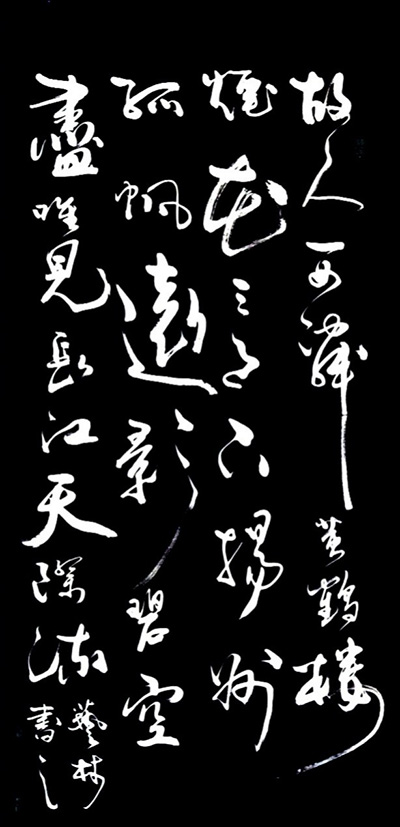 故人西辭黄鶴樓
煙花三月下揚州
孤帆遠影碧空
盡唯見長江天際流
藝林
書之